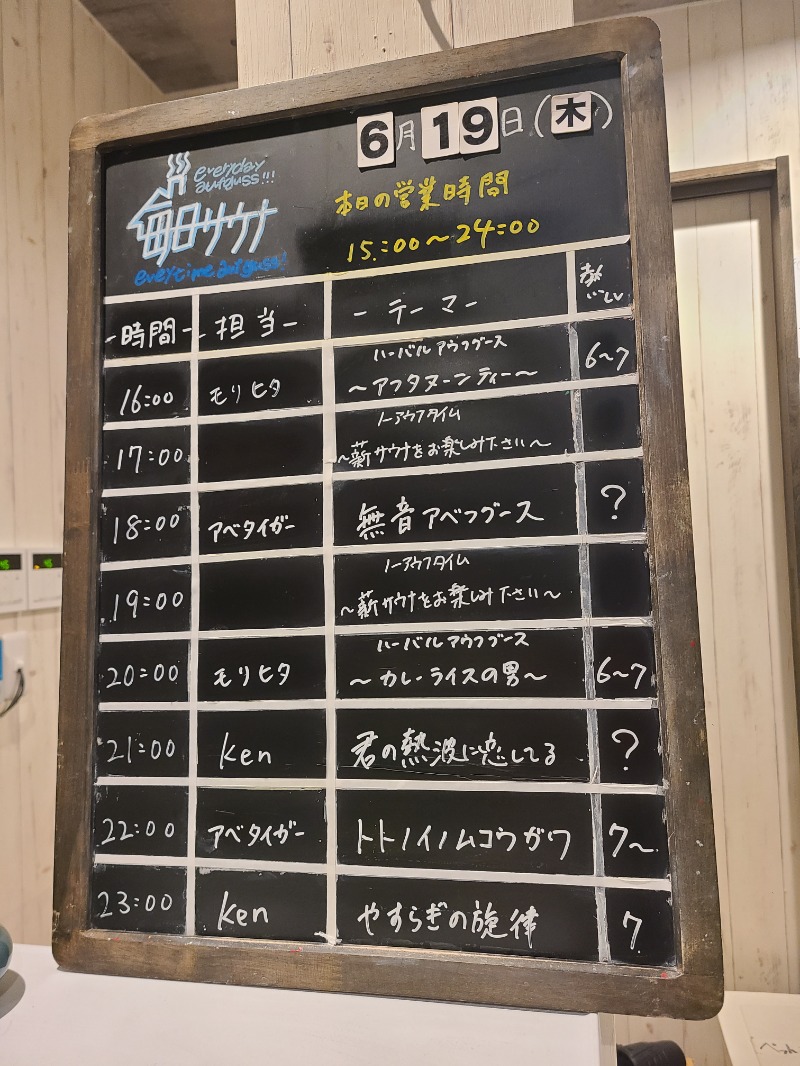 6月19日(木)
everyday
aufguss!!!
毎日サウナ
everytime aufguss!
本日の営業時間
15:00～24:00
-時間- -担当- -テーマ-
16:00 モリヒタ ハーバルアウフグース 6～7
～アフタヌーンティー～
17:00 ノーアウフタイム
～薪サウナをお楽しみ下さい～
18:00 アベタイガー 無音アベフグース ?
19:00 ノーアウフタイム
～薪サウナをお楽しみ下さい～
20:00 モリヒタ ハーバルアウフグース 6～7
～カレーライスの男～
21:00 Ken 君の熱波に恋してる ?
22:00 アベタイガー トトノイノムコウガワ 7～
23:00 Ken やすらぎの旋律 7